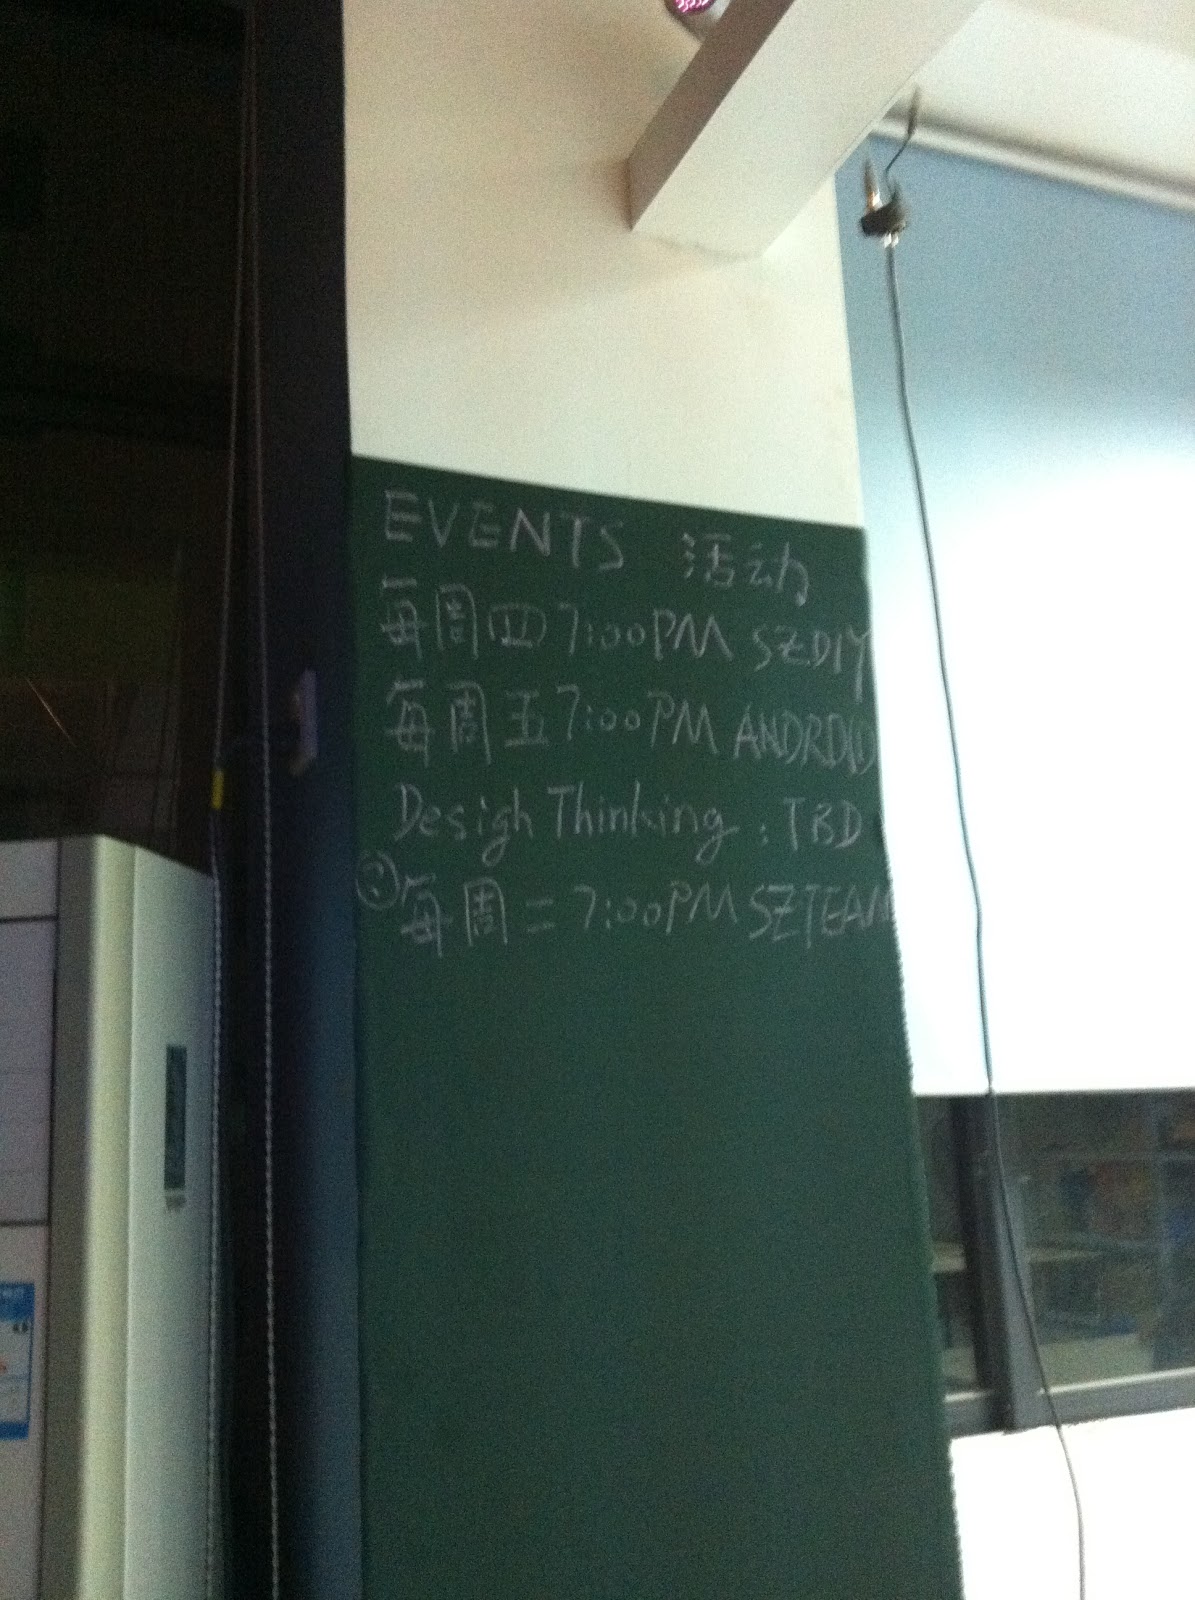 EVENTS 活动
每周四 7:00PM SZDIY
每周五 7:00PM ANDROID
Design Thinking : TBD
每周二 7:00PM SZTEAM